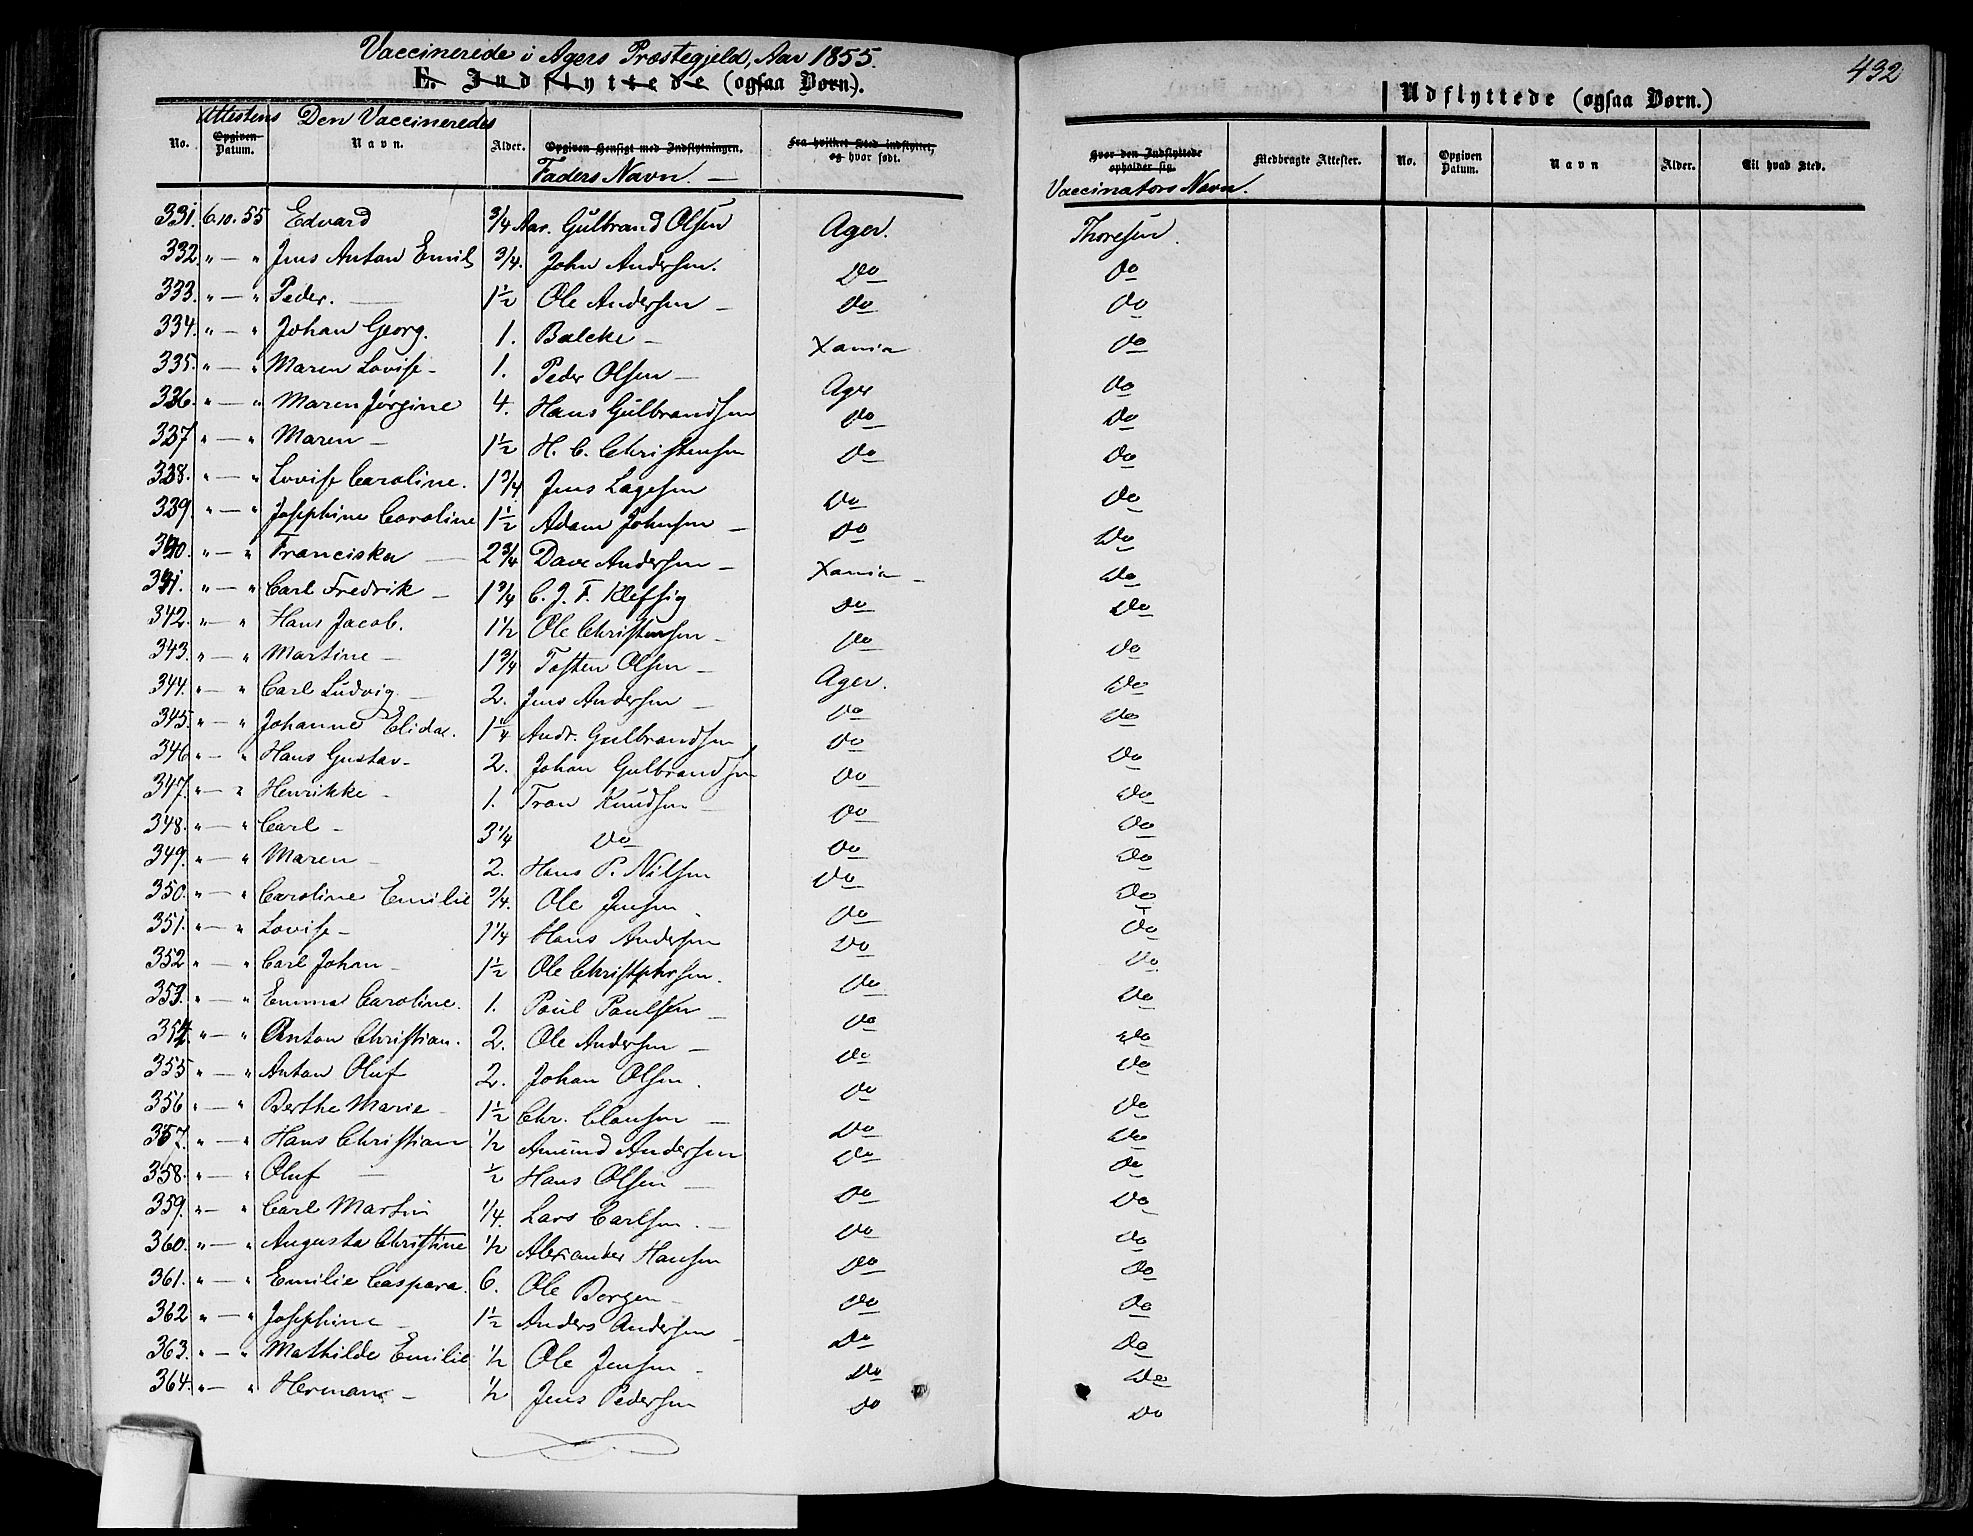 Vaccinerede i Agers Præstegjeld, Aar 1855.
E. Indflyttede (ogsaa Børn).
432
Udflyttede (ogsaa Børn.)
No. | Attestens Opgiven Datum. | Den Vaccineredes Navn. | Alder. | Opgiven Hensigt med Indflytningen. Faders Navn. — | Fra hvilket Sted indflyttet, og hvor født. | Hvor den Indflyttede opholder sig. Vaccinators Navn. | Medbragte Attester. | No. | Opgiven Datum. | Navn | Alder. | Til hvad Sted.
331. 6.10.55 Edvard 3/4 Aar. Gulbrand Olsen Ager. Thoresen.
332. " — " Jens Anton Emil 3/4. John Andersen. Do Do
333. " — " Peder. — 1 1/2 Ole Andersen — Do Do
334. " — " Johan Georg. 1. Balcke — Xania Do
335. " — " Maren Lovise — 1. Peder Olsen — Ager Do
336. " — " Maren Jørgine 4. Hans Gulbrandsen Do Do
337 " — " Maren — 1 1/2 H. C. Christensen Do Do
338. " — " Lovise Caroline. 1 3/4 Jens Lagesen Do Do
339. " — " Josephine Caroline 1 1/2 Adam Johnsen — Do Do
340. " — " Franciska — 2 3/4 Dave Andersen — Xania — Do
341. " — " Carl Fredrik — 1 3/4 C. J. F. Klefsig Do Do
342. " — " Hans Jacob. 1 1/2 Ole Christensen — Do Do
343. " — " Martine — 1 3/4 Tosten Olsen — Ager. Do
344. " — " Carl Ludvig. — 2. Jens Andersen — Do Do
345. " — " Johanne Elida. 1 1/4 Andr. Gulbrandsen Do Do
346 " — " Hans Gustav — 2. Johan Gulbrandsen Do Do
347. " — " Henrikke — 1. Tron Knudsen — Do Do
348. " — " Carl — 3 1/4 Do Do Do
349. " — " Maren — 2. Hans P. Nilsen Do Do
350. " — " Caroline Emilie 3/4. Ole Jensen. Do Do
351. " — " Lovise — 1 1/4 Hans Andersen Do Do
352 " — " Carl Johan — 1 1/2 Ole Christphersen. Do Do
353. " — " Emma Caroline. 1. Poul Paulsen — Do Do
354. " — " Anton Christian. 2. Ole Andersen — Do Do
355 " — " Anton Oluf 2. Johan Olsen. Do Do
356 " — " Berthe Marie — 1 1/2 Chr. Clausen — Do Do
357. " — " Hans Christian 1/2 Amund Andersen Do Do
358. " — " Oluf — 1/2 Hans Olsen — Do Do
359. " — " Carl Martin 1/4. Lars Carlsen. — Do Do
360. " — " Augusta Christine 1/2 Alexander Hansen Do Do
361. " — " Emilie Caspara. 6. Ole Borgen — Do Do
362 " — " Josephine — 1 1/2 Anders Andersen — Do Do
363. " — " Mathilde Emilie 1/2 Ole Jensen — Do Do
364. " — " Herman. — 1/2 Jens Pedersen Do Do